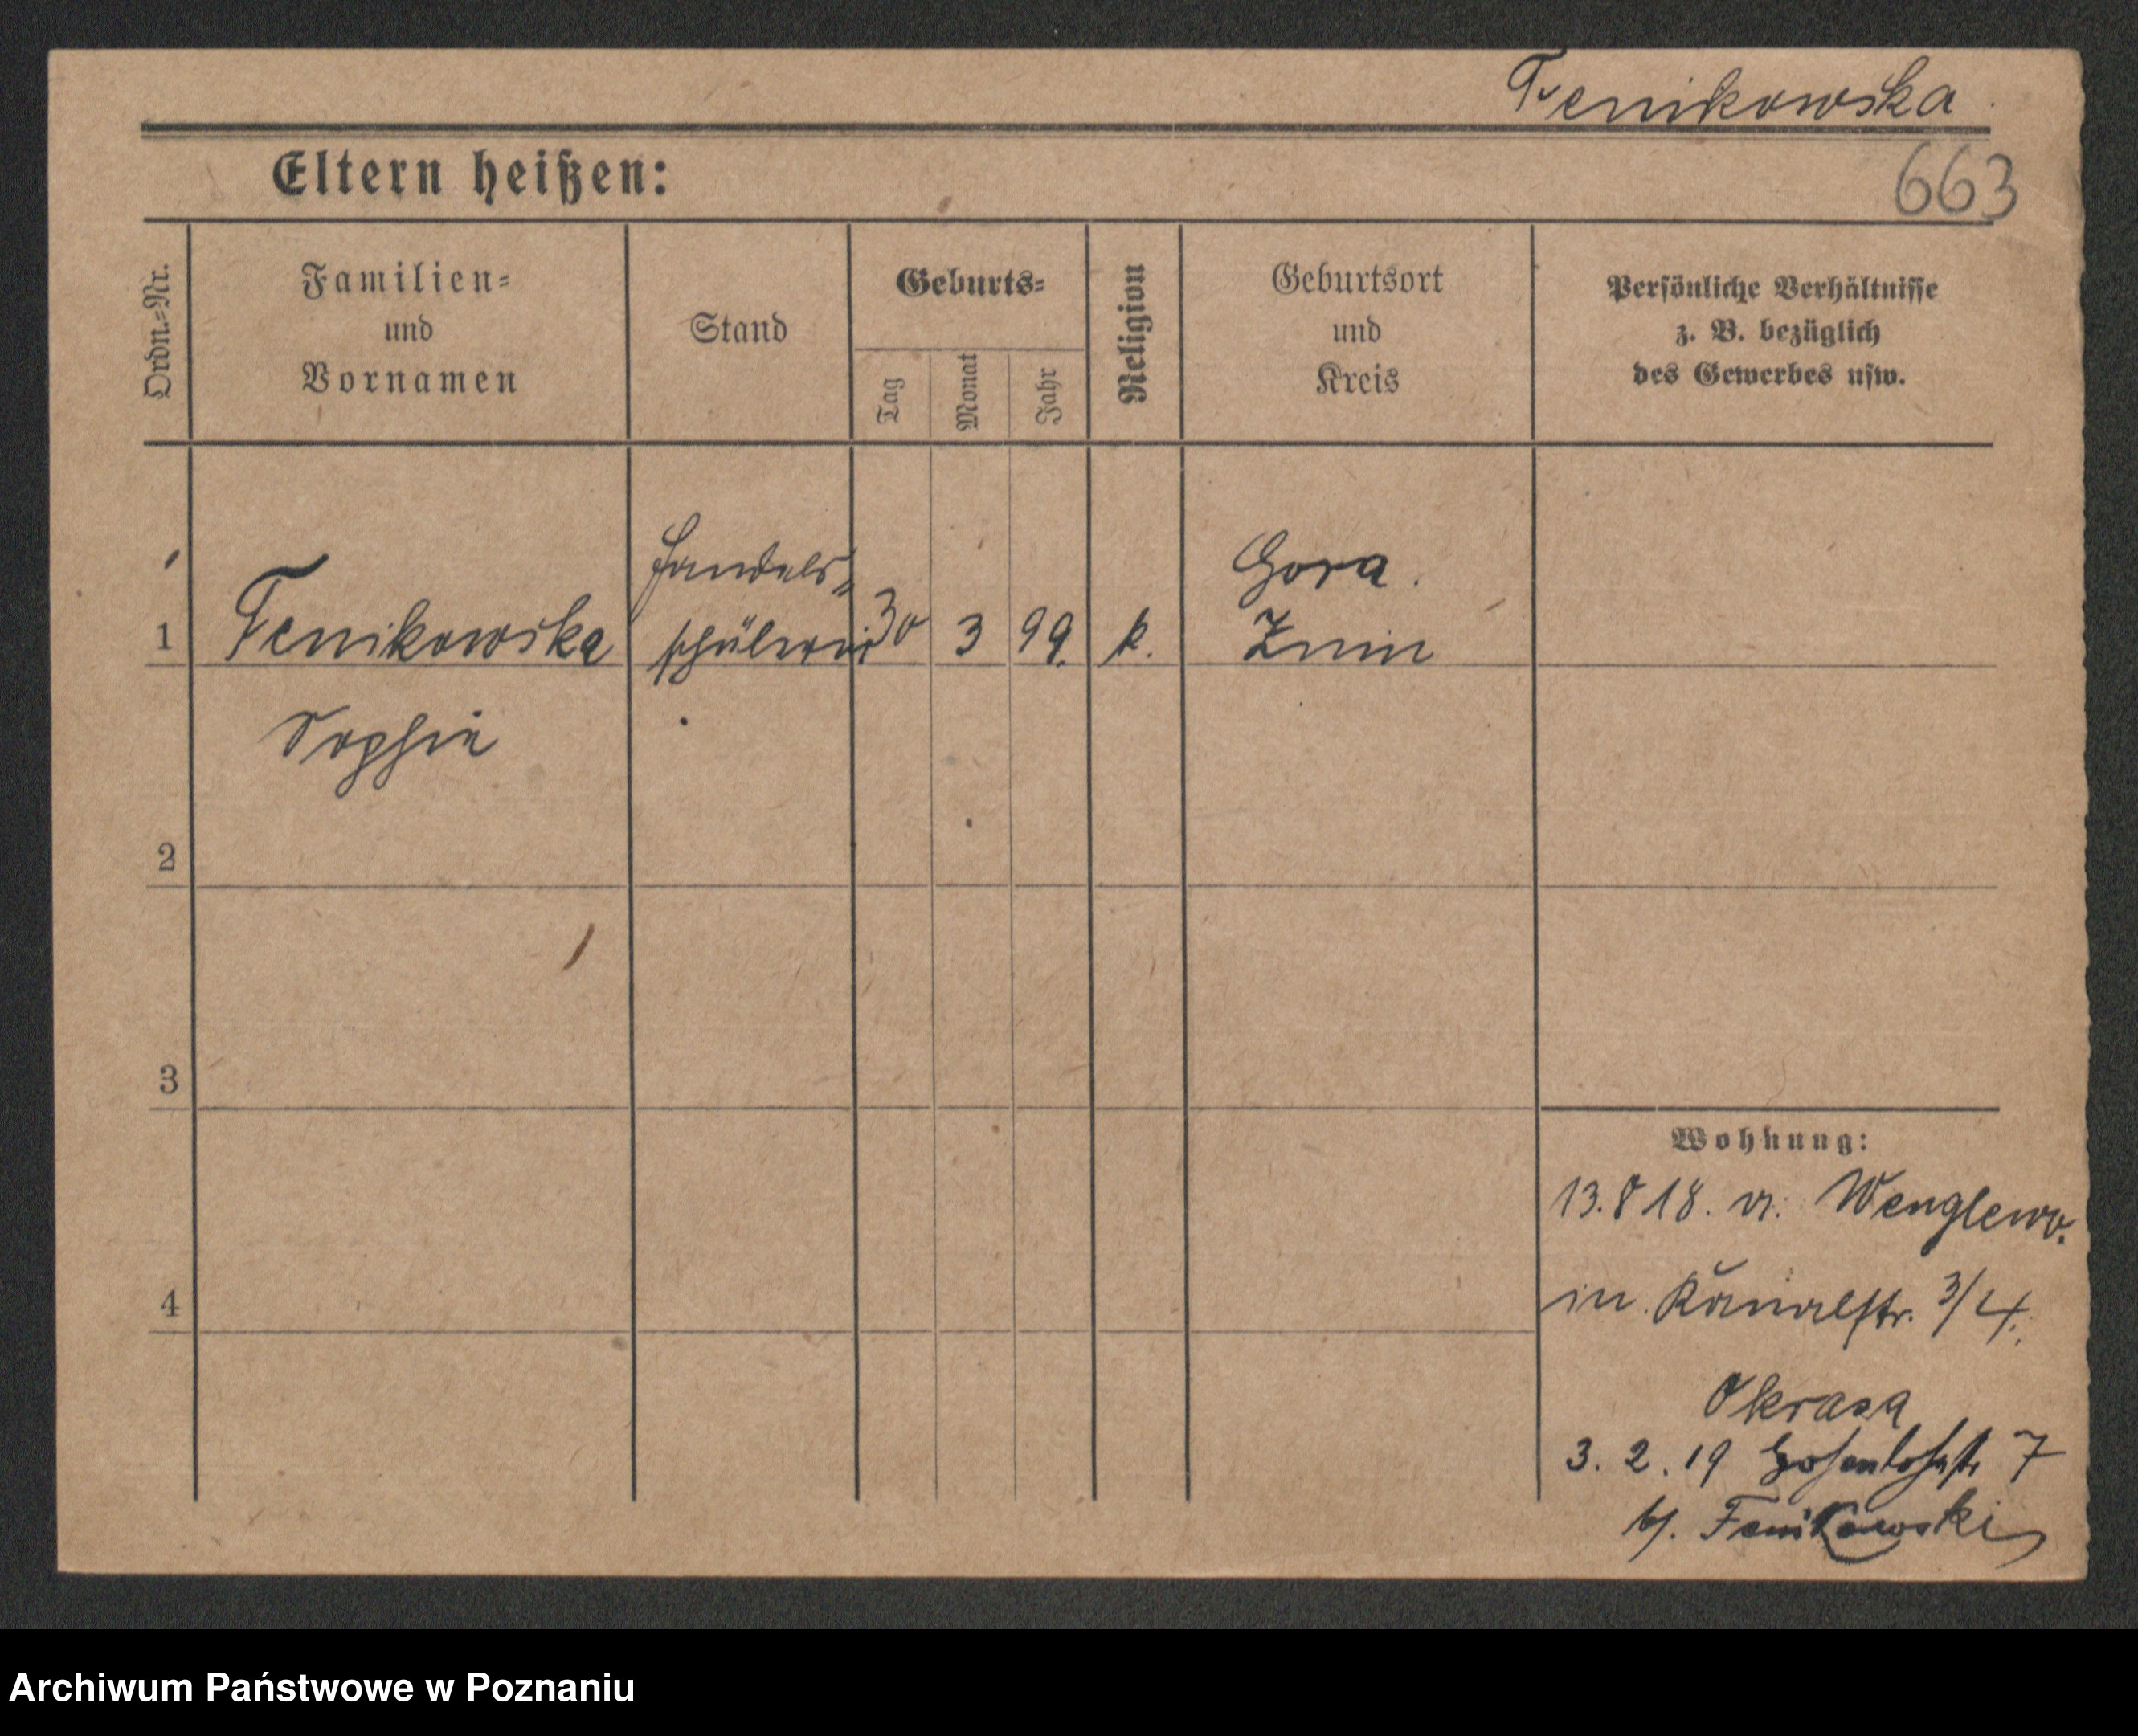 Fenikowska
Eltern heißen:
663
Ordn.-Nr.
Familien-
und
Vornamen
Stand
Geburts-
Tag
Monat
Jahr
Religion
Geburtsort
und
Kreis
Persönliche Verhältnisse
z. B. bezüglich
des Gewerbes usw.
1
Fenikowska
Sophia
Handels-
schülerin
30
3
99.
k.
Gora.
Znin
2
3
4
Wohnung:
13.8 18. v. Wenglewo.
in Kanalstr. 3/4.
Okrasa
3. 2. 19 Hohenlohestr 7
b/. Fenikowski
Archiwum Państwowe w Poznaniu